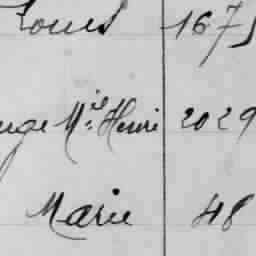 Louis 1675
uge Mie Henri 2029
Marie 48